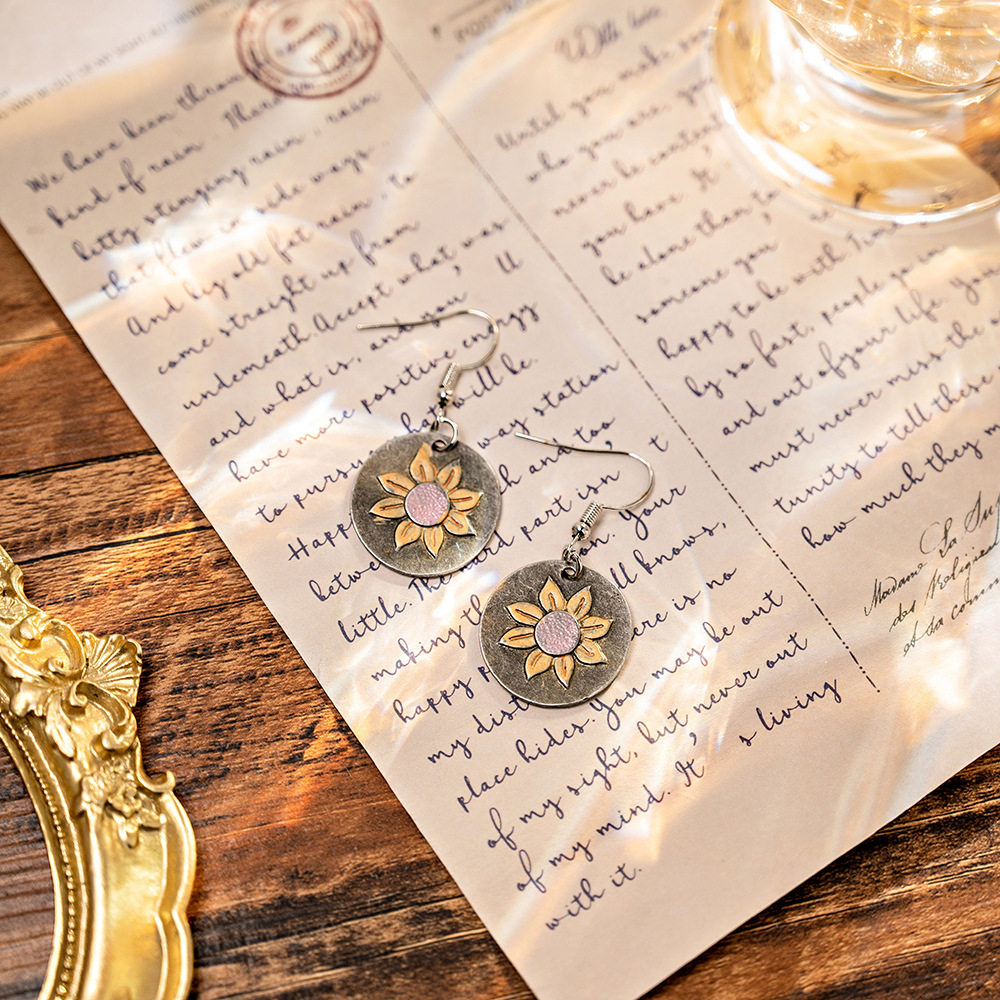 We have been throu
kind of rain. There
bitty stinging rain, rain
that flew in side ways.
And big old fat rain, to
come straight up from
underneath. Accept what was
and what is, and you ' ll
have more positive energy
to pursu what will be.
Happ way station
betwe ch and too
little. The hard part isn ' t
making th on. Your
happy p ll knows,
my dist ere is no
place hides. You may be out
of my sight, but never out
of my mind. It ' s living
with it.
With love.
Until you make
who you are, yo
never be content
you have. It '
be alone than to
someone you
happy to be with. Time
by so fast, people go in
and out of your life. You
must never miss the o
tunity to tell these
how much they m
Madame La Su
des Religieu
et la comm